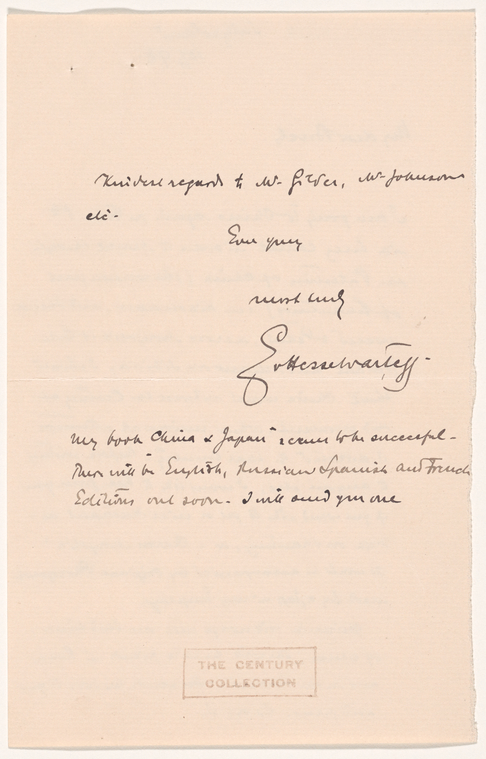 Kindest regards to Mr. Gilder, Mr. Johnson
etc.
Ever yours
most truly
EvHessewartegg.
My book China & Japan" seems to be successful -
There will be English, Russian Spanish and French
Editions out soon - I will send you one
THE CENTURY
COLLECTION